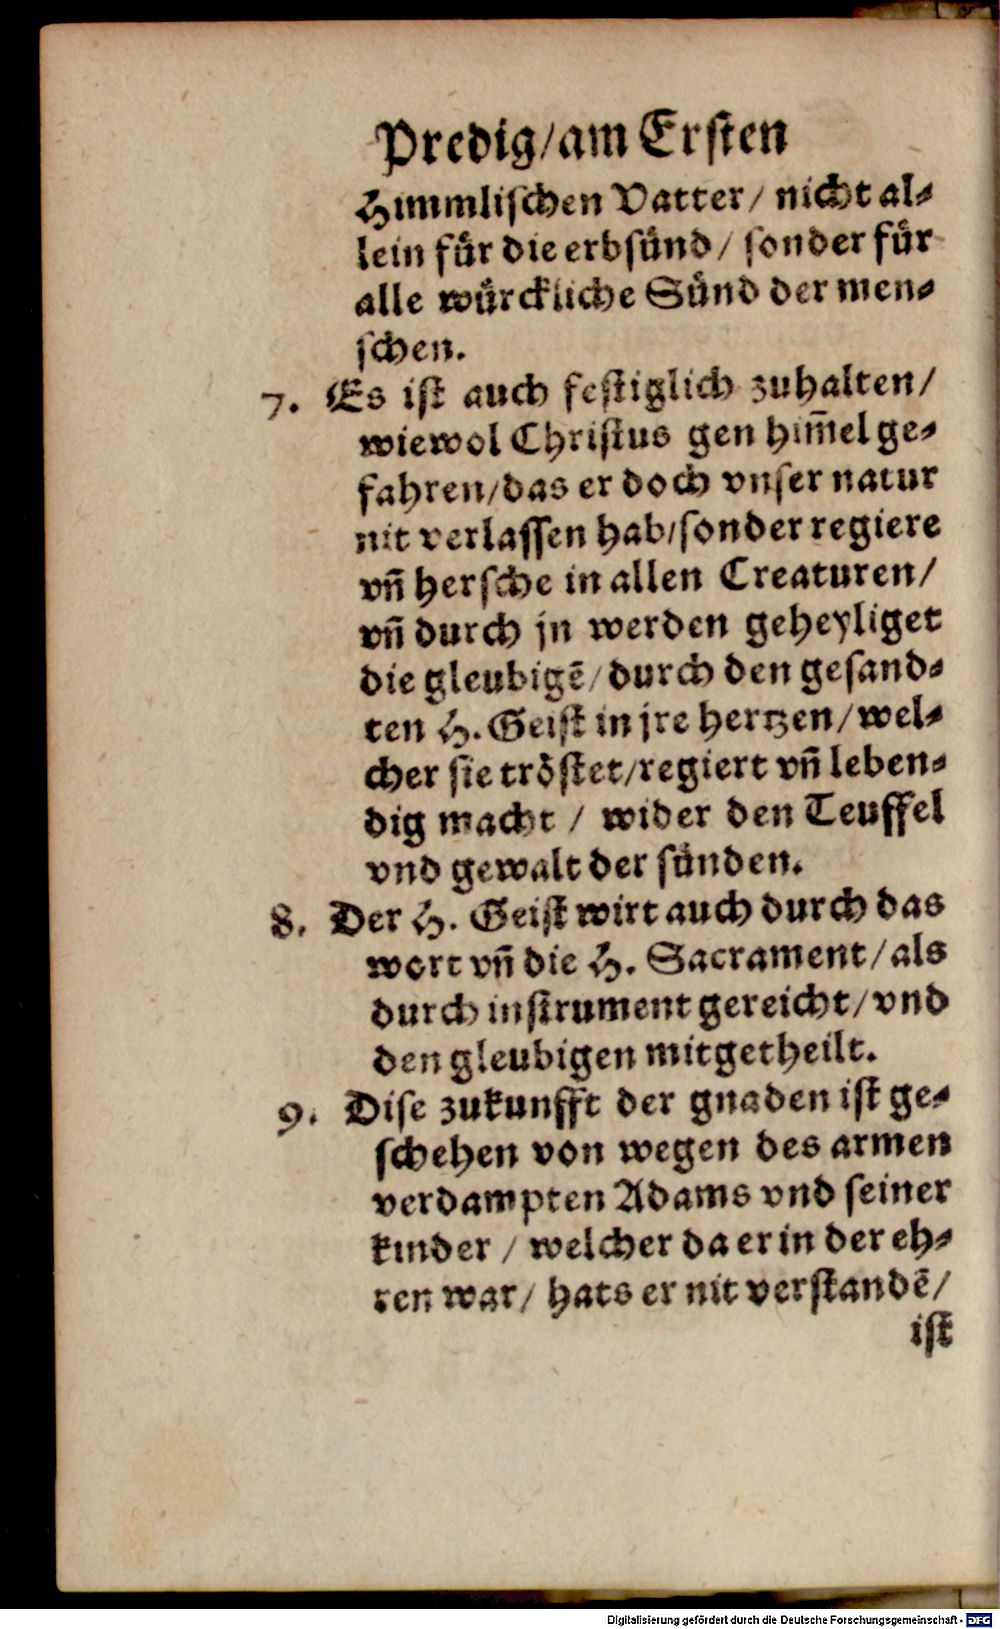 Predig/am Ersten
Himmlischen Vatter/ nicht al⸗
lein fuͤr die erbsuͤnd/ sonder fuͤr
alle wuͤrckliche Suͤnd der men⸗
schen.
7. Es ist auch festiglich zuhalten/
wiewol Christus gen him̃el ge⸗
fahren/das er doch vnser natur
nit verlassen hab/sonder regiere
vñ hersche in allen Creaturen/
vñ durch jn werden geheyliget
die gleubigẽ/durch den gesand⸗
ten H. Geist in jre hertzen/wel⸗
cher sie troͤstet/regiert vñ leben⸗
dig macht / wider den Teuffel
vnd gewalt der suͤnden.
8. Der H. Geist wirt auch durch das
wort vñ die H. Sacrament/als
durch instrument gereicht/vnd
den gleubigen mitgetheilt.
9. Dise zukunfft der gnaden ist ge⸗
schehen von wegen des armen
verdampten Adams vnd seiner
kinder / welcher da er in der eh⸗
ren war/ hats er nit verstandẽ/
ist
Digitalisierung gefördert durch die Deutsche Forschungsgemeinschaft - DFG